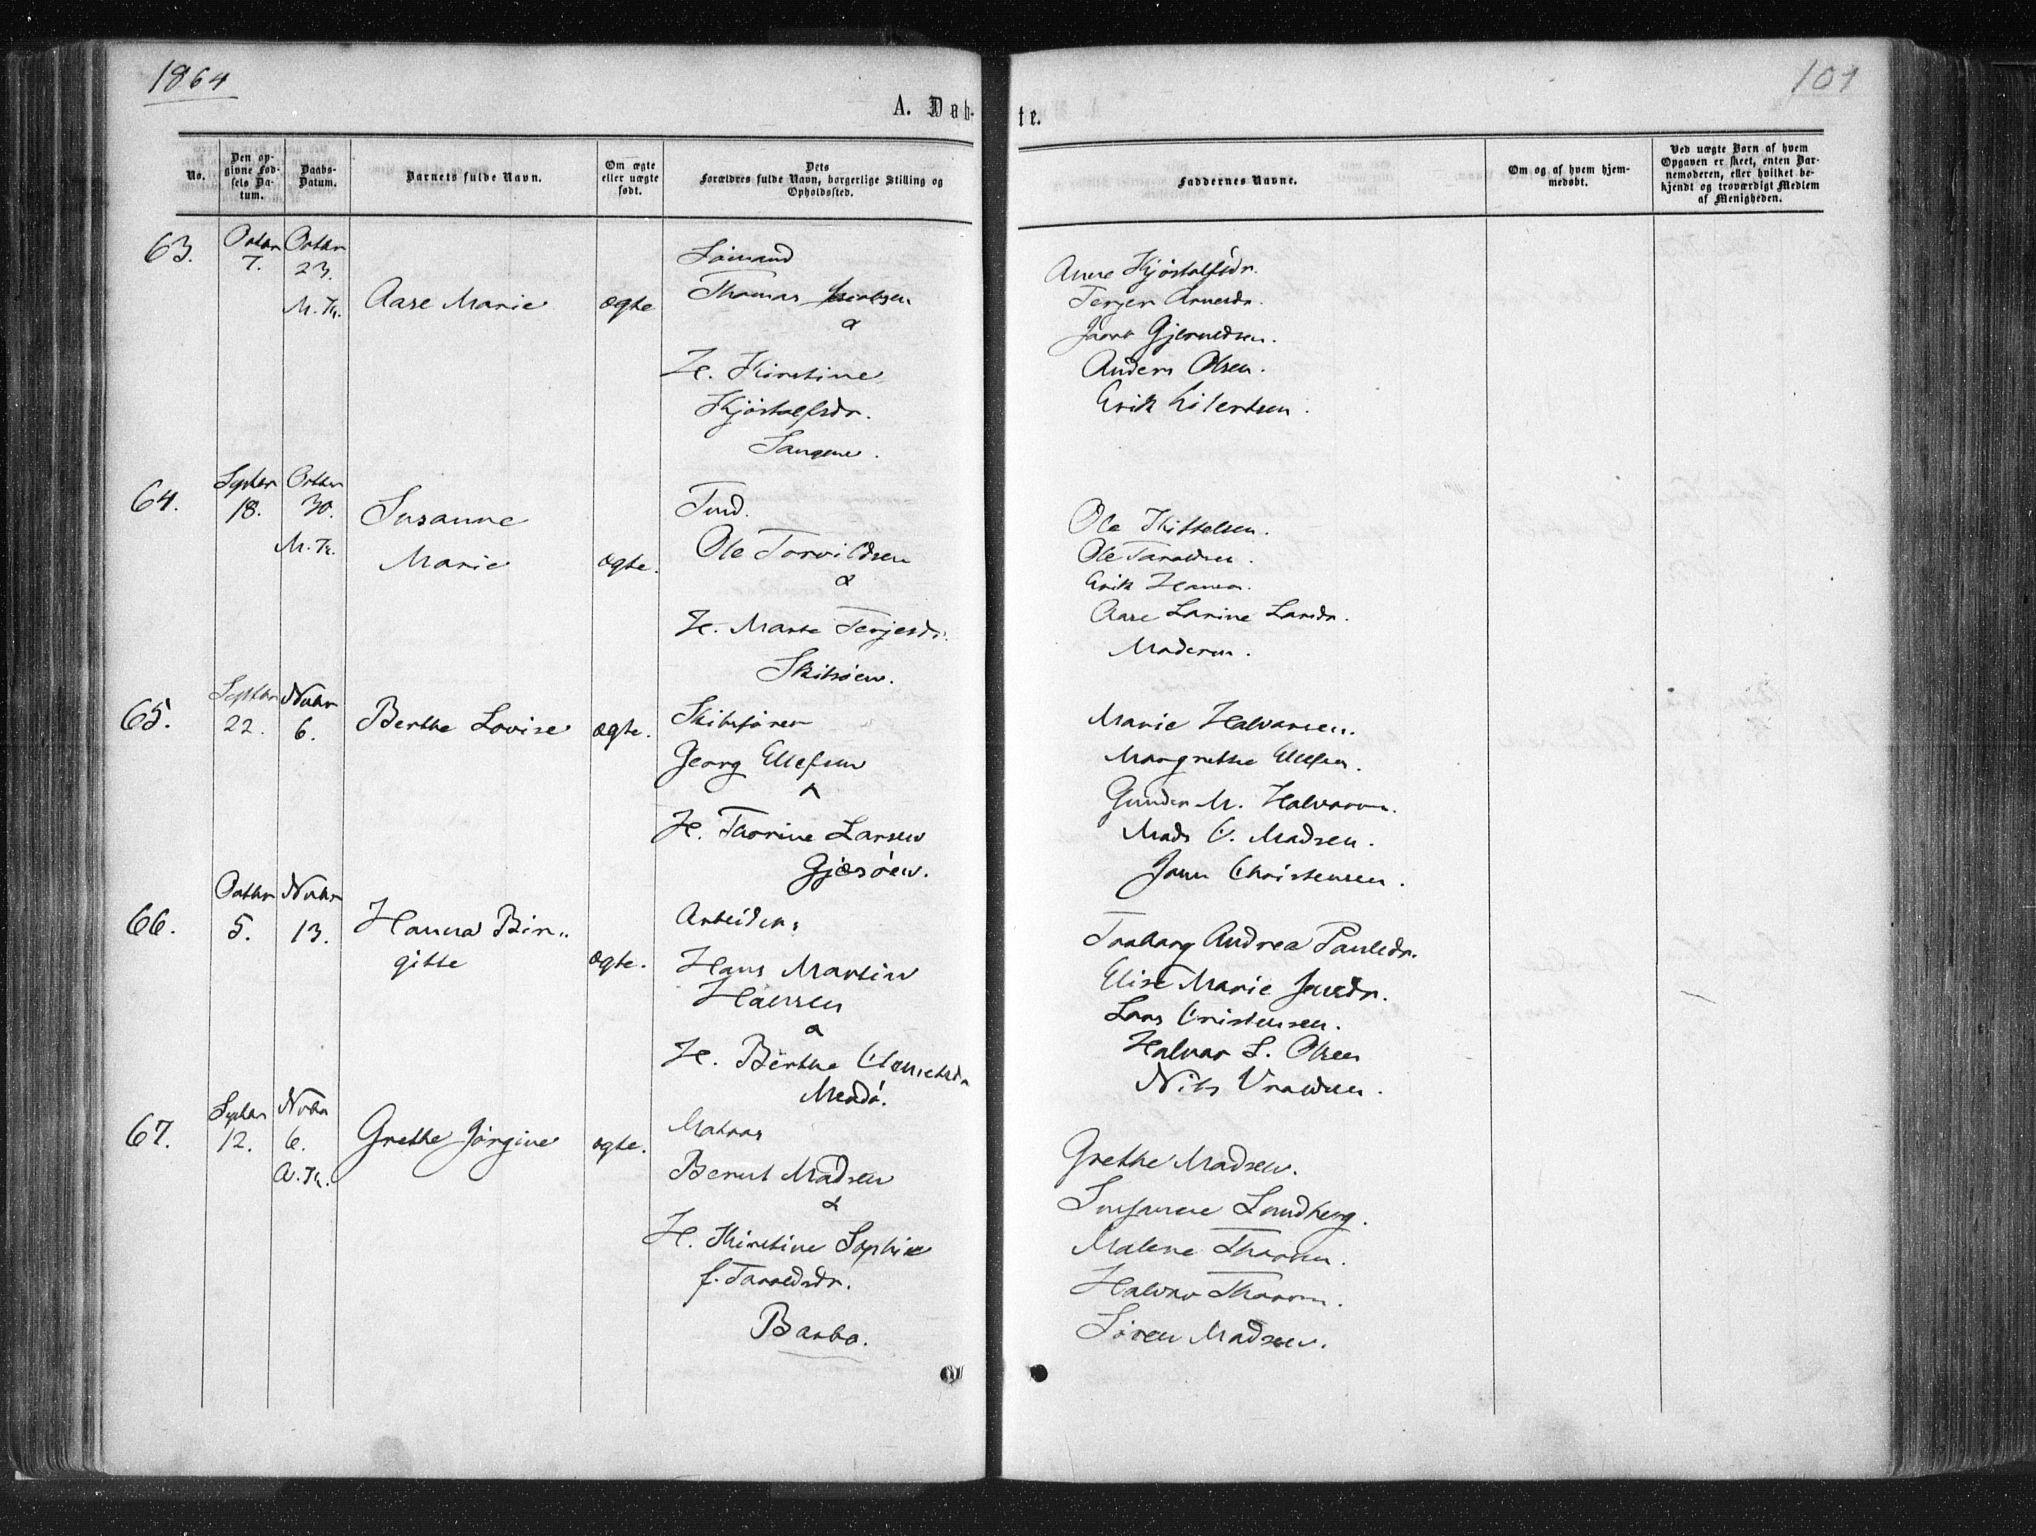 1864
101
A. Døb-
te.
No.
Den op-
givne Fød-
sels Da-
tum.
Daabs-
Datum.
Barnets fulde Navn.
Om ægte
eller uægte
født.
Dets
Forældres fulde Navn, borgerlige Stilling og
Opholdssted.
Faddernes Navne.
Om og af hvem hjem-
medøbt.
Ved uægte Børn af hvem
Opgaven er skeet, enten Bar-
nemoderen, eller hvilket be-
kjendt og troværdigt Medlem
af Menigheden.
63.
Octbr
7.
Octbr
23.
M.K.
Aase Marie
ægte
Sømand
Thomas
&
H. Kirstine
Kjøstolfsdr.
Sangene.
Anne Kjøstolfsdr.
Terjer Arnesdr.
Gjeruldsen.
Anders Olsen.
Erik Eilertsen.
64.
Septbr
18.
Octbr
30.
M.K.
Susanne
Marie
ægte.
Tind.
Ole Torvildsen
&
H. Marte Terjesdr.
Skilsøen.
Ole Kittelsen.
Ole Taraldsen.
Erik Hansen.
Aase Larine Larsdr.
Moderen.
65.
Septbr
22.
Novbr
6.
Berthe Lovise
ægte.
Skibsfører
Georg Ellefsen
&
H. Thorine Larsen
Gjæsøen.
Marie Halvorsen.
Margrethe Ellefsen.
Gunder M. Halvorsen.
Mads C. Madsen.
Jørn Christensen.
66.
Octbr
5.
Novbr
13.
Hanna Bir-
gitte
ægte.
Arbeider
Hans Martin
Hansen
&
H. Berthe Clemetsdr
Merdø.
Andrea Paulsdr.
Elise Marie Jensdr.
Lars Cristensen.
Halvor L. Olsen
Nils
67.
Septbr
12.
Novbr
6.
A.K.
Grethe Jørgine
ægte.
Matros
Berent Madsen
&
H. Kirstine Sophie
f. Taraldsdr.
Barbo.
Grethe Madsen.
Susanne Lundberg.
Malene Thorsen.
Halvor Thorsen.
Søren Madsen.